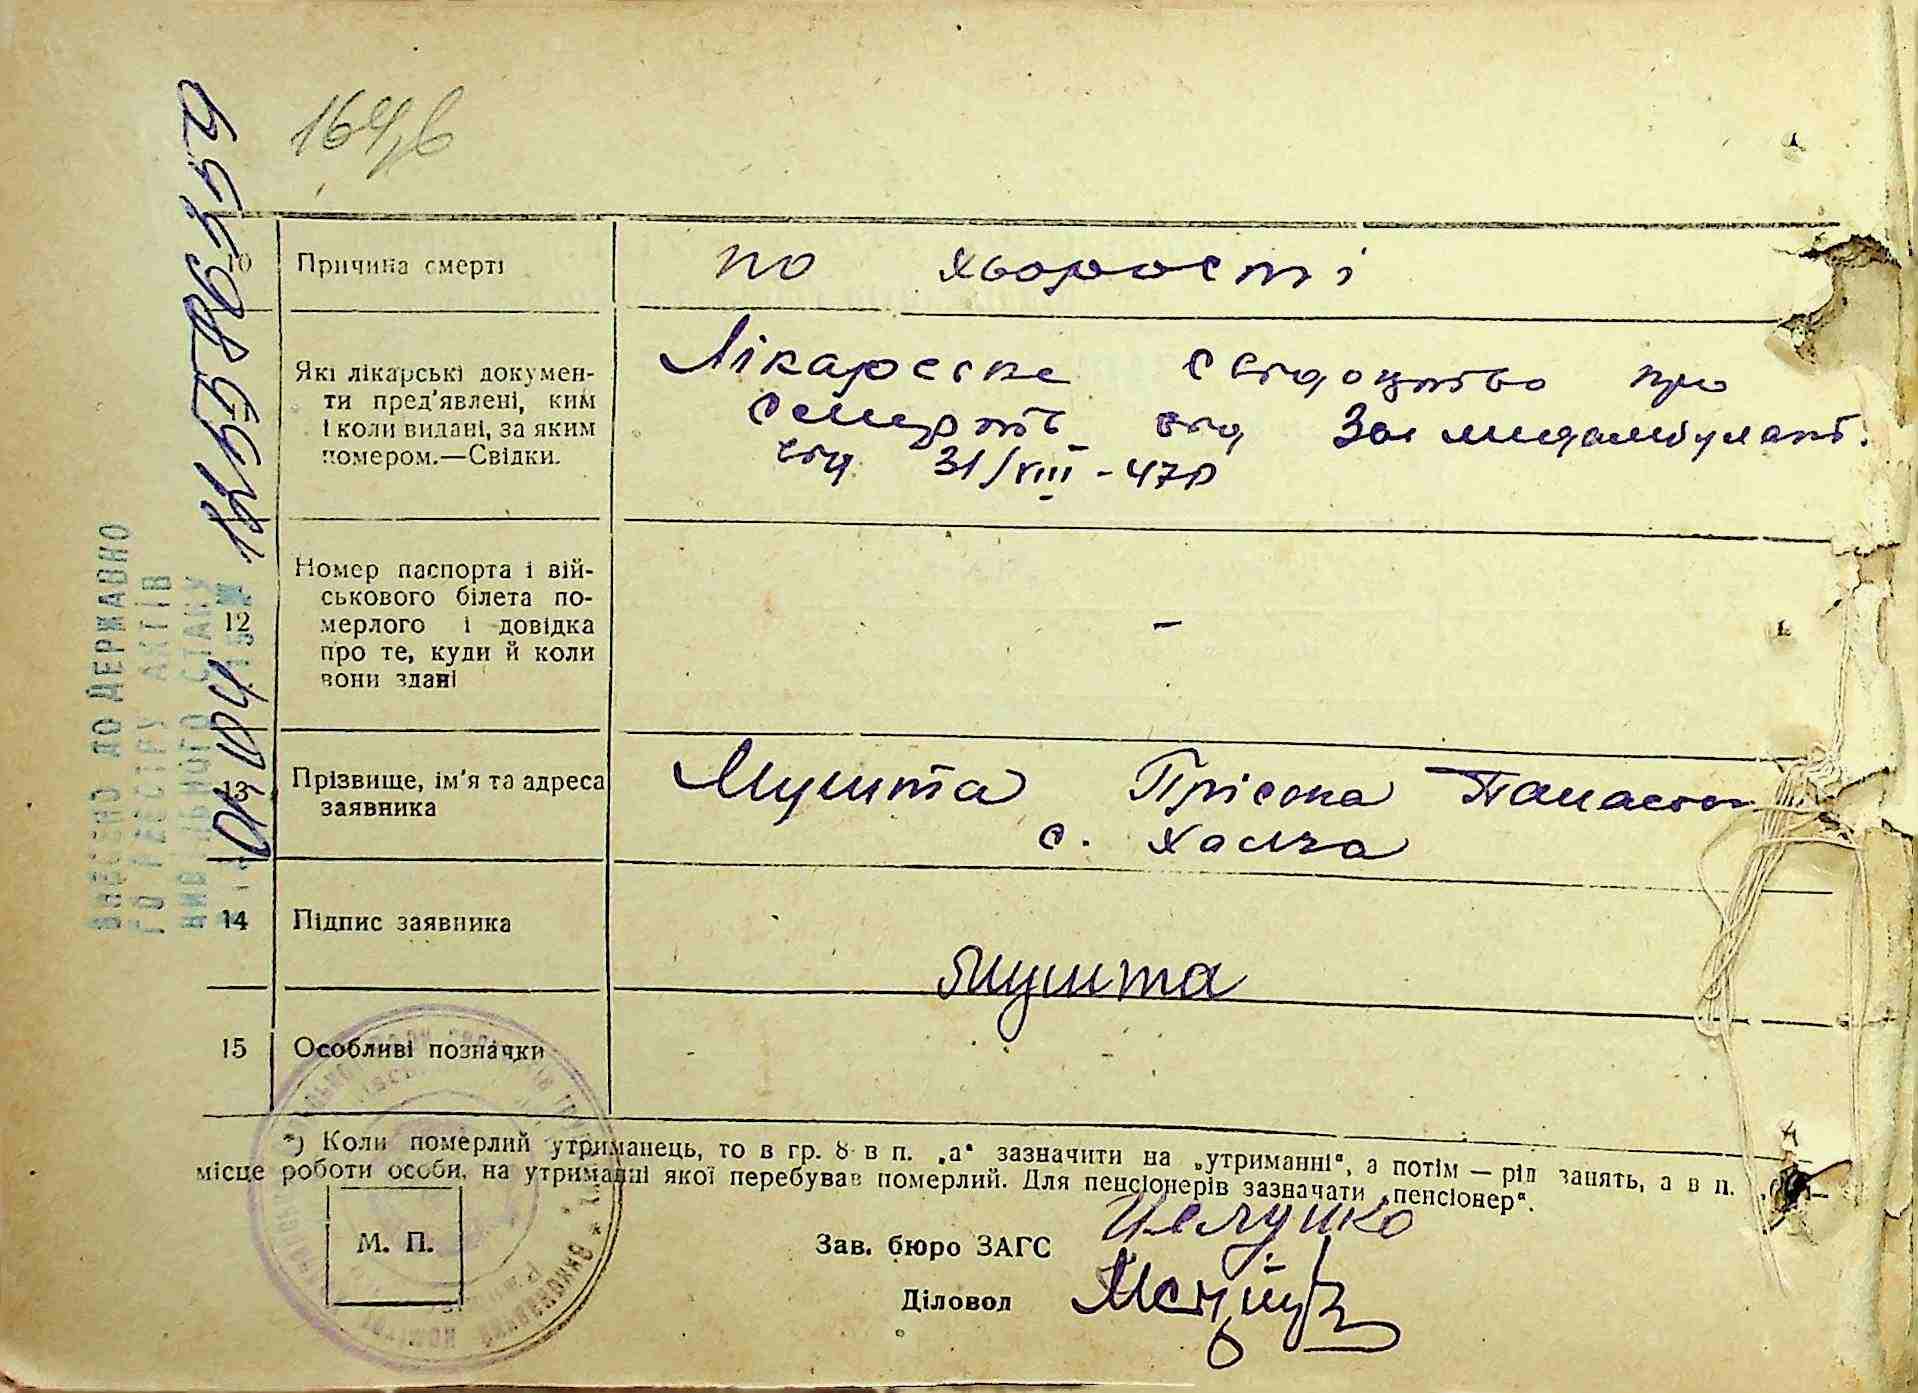 164,б
10 Причина смерті по хворості
11 Які лікарські докумен-
ти пред'явлені, ким
і коли видані, за яким
номером.—Свідки.
Лікареске свідоцтво про
смерть від Зав медамбулат.
від 31/VIII - 47р
12 Номер паспорта і вій-
ськового білета по-
мерлого і довідка
про те, куди й коли
вони здані
-
13 Прізвище, ім'я та адреса
заявника
Мушта Прісока Панасов
с. Халча
14 Підпис заявника
Мушта
15 Особливі позначки
*) Коли померлий утриманець, то в гр. 8 в п. „а“ зазначити на „утриманні“, а потім — рід занять, а в п.
місце роботи особи, на утриманні якої перебував померлий. Для пенсіонерів зазначати „пенсіонер“.
М. П.
Зав. бюро ЗАГС
Діловод
ВНЕСЕНО ДО ДЕРЖАВНО
ГО РЕЄСТРУ АКТІВ
ЦИВІЛЬНОГО СТАНУ